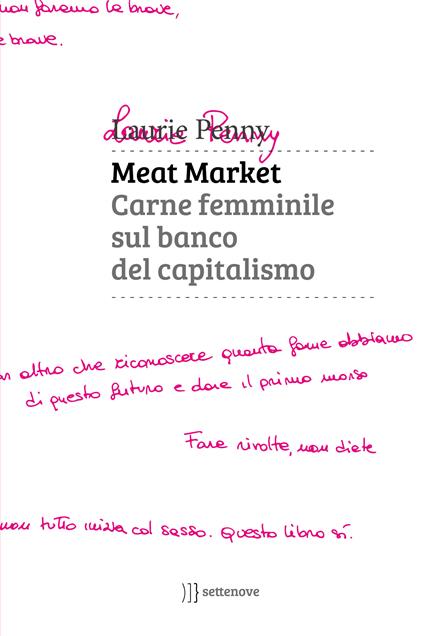 non faremo le brave,
e brave.
Laurie Penny
Laurie Penny
Meat Market
Carne femminile
sul banco
del capitalismo
n altro che riconoscere quanta fame abbiamo
di questo futuro e dare il primo morso
Fare rivolte, non diete
non tutto inizia col sesso. Questo libro sì.
)]} settenove